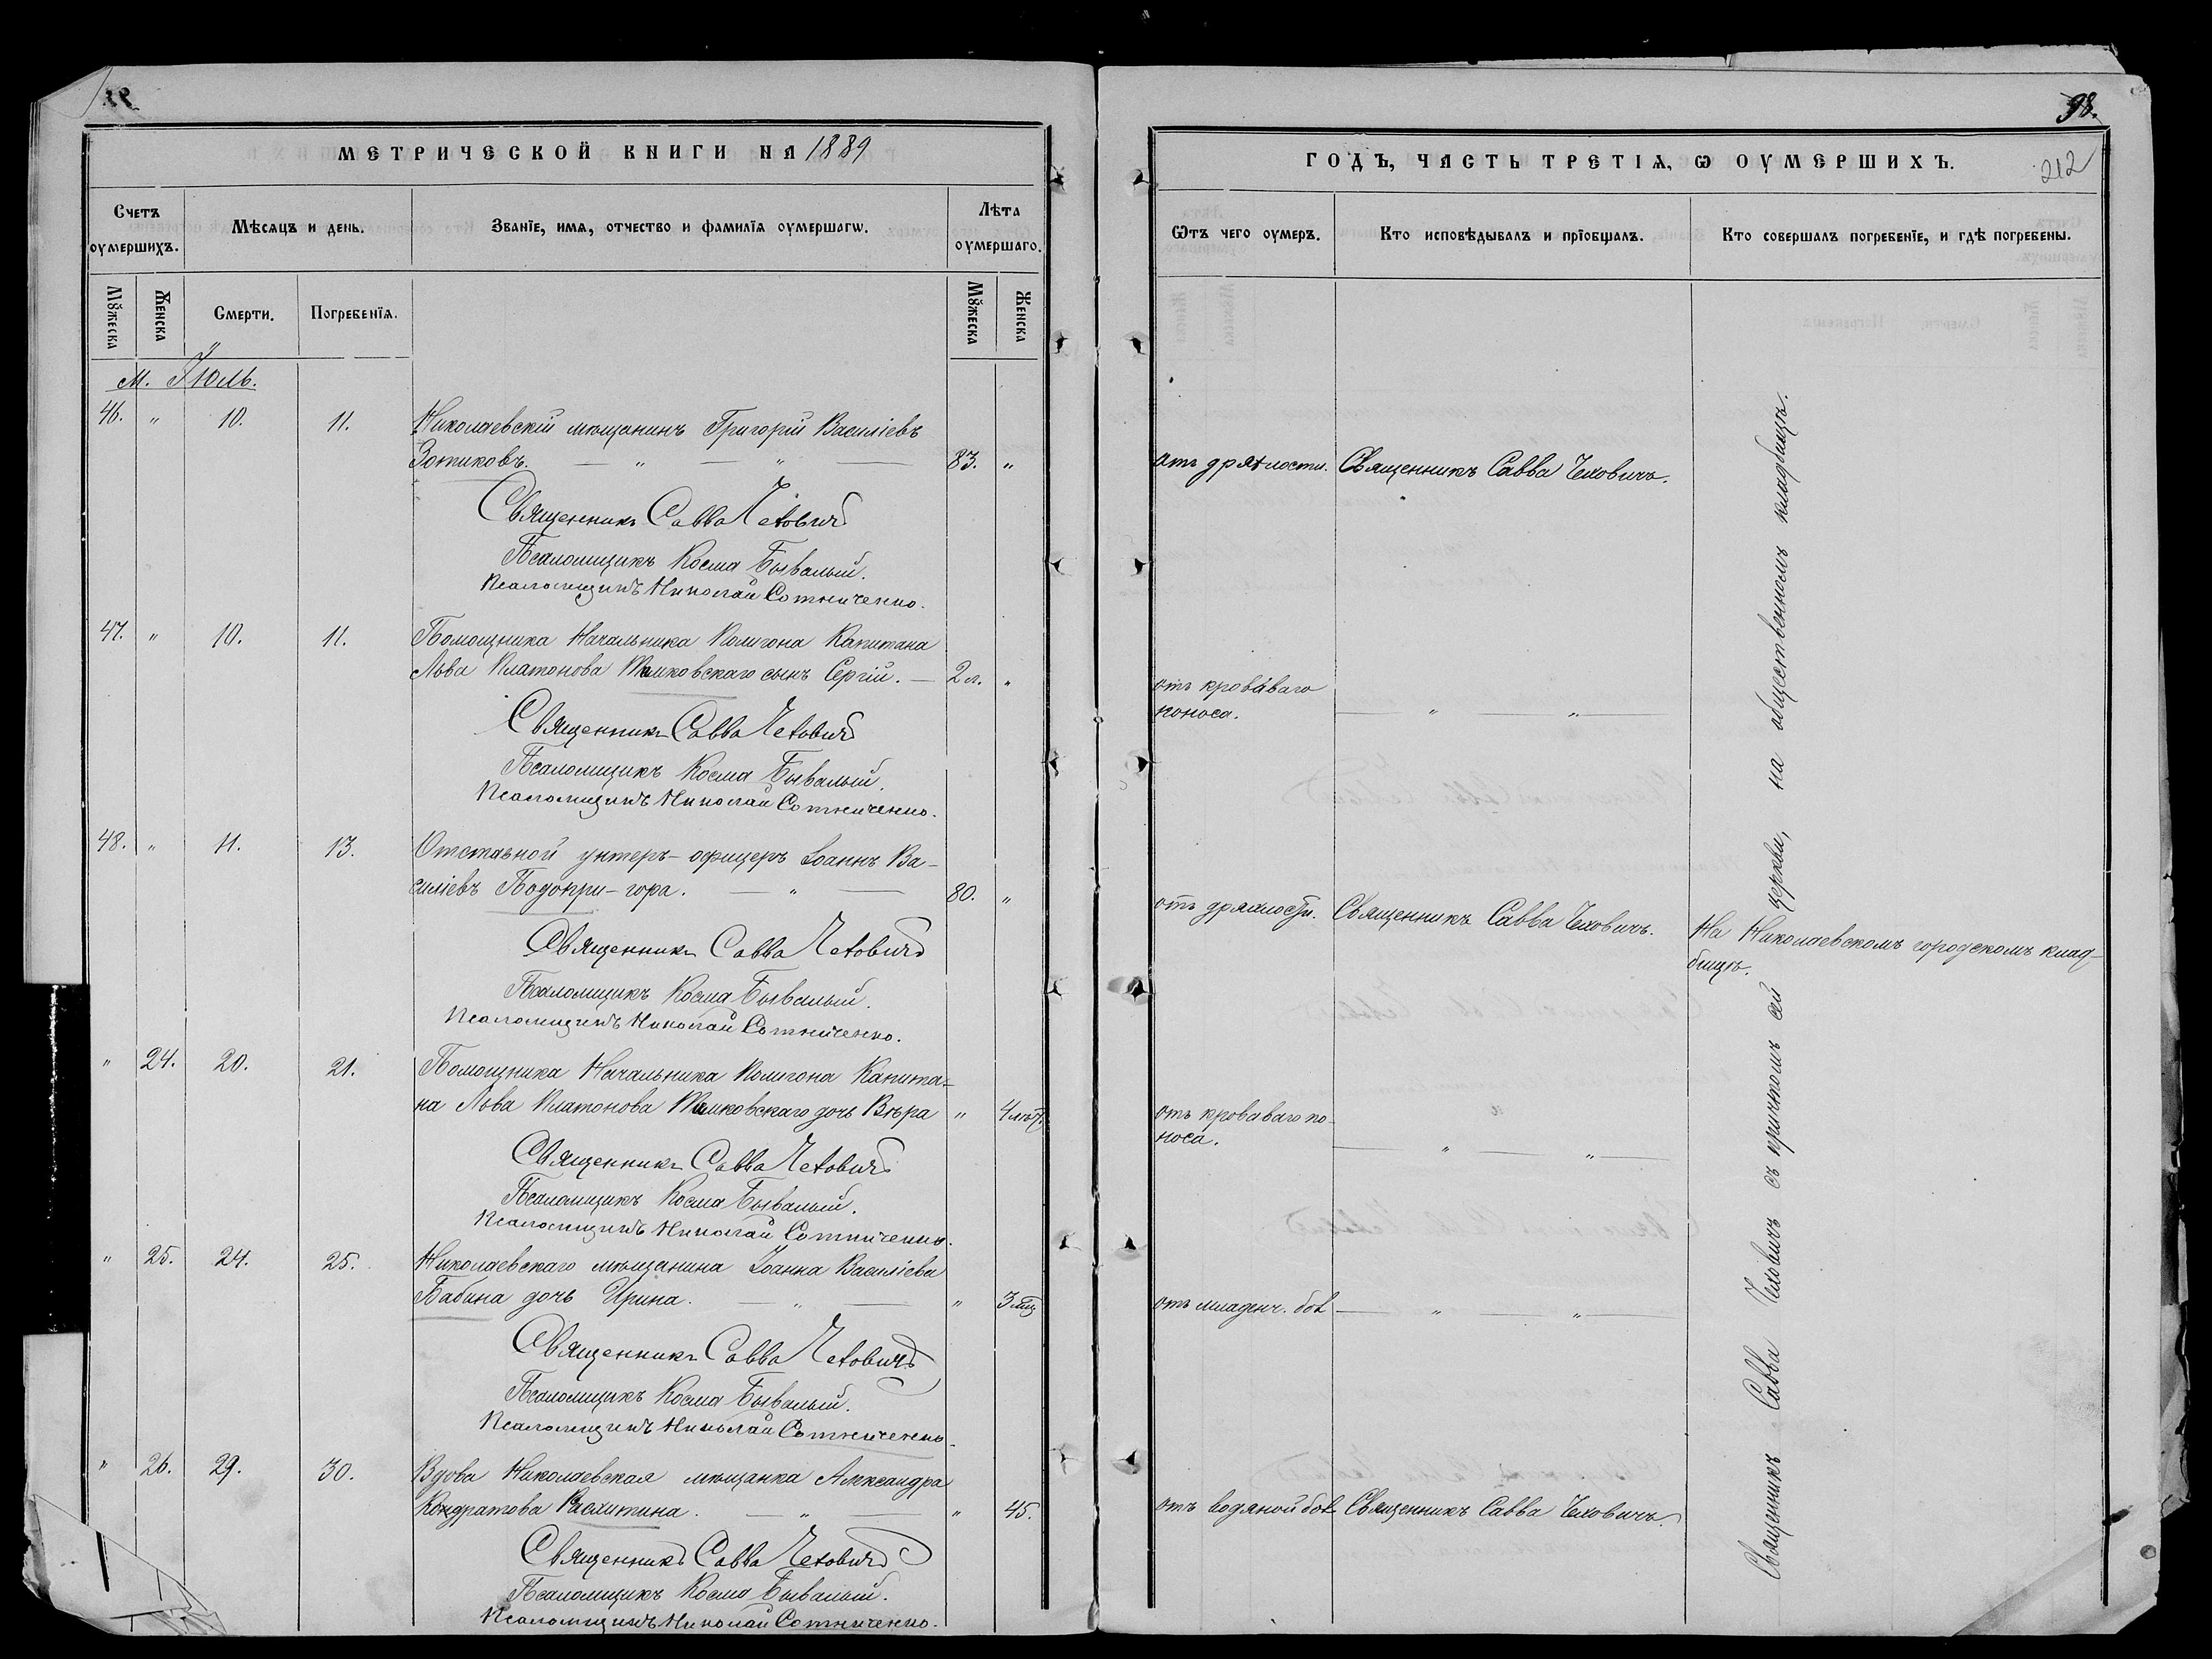 98.
212
МЕТРИЧЕСКОЙ КНИГИ НА 1889
ГОДЪ, ЧАСТЬ ТРЕТІѦ, Ѡ ОУМЕРШИХЪ.
Счетъ оумершихъ.
Мѣсѧцъ и день.
Званїе, имѧ, отчество и фамилїѧ оумершагѡ.
Лѣта оумершаго.
Ѿтъ чего оумеръ.
Кто исповѣдывалъ и прїобщалъ.
Кто совершалъ погребенїе, и гдѣ погребены.
Мꙋжеска
Женска
Смерти.
Погребенїѧ.
Мꙋжеска
Женска
м. Іюль.
46. " 10. 11. Николаевскій мѣщанинъ Григорій Василіевъ
Зотиковъ. — " — " — 83. " отъ дряхлости. Священникъ Савва Чехович.
Священникъ Савва Чеховичъ
Псаломщикъ Косма Бывалый.
Псаломщикъ Николай Сотниченко.
47. " 10. 11. Помощника Начальника Полигона Капитана
Льва Платонова сынъ Сергій. — 2 л. " отъ кроваваго
поноса. — " — " —
Священникъ Савва Чеховичъ
Псаломщикъ Косма Бывалый.
Псаломщикъ Николай Сотниченко.
48. " 11. 13. Отставной унтеръ-офицеръ Іоаннъ Ва-
силіевъ Подопри-гора. — " — 80. " отъ дряхлости. Священникъ Савва Чеховичъ. На Николаевскомъ городскомъ клад-
бищѣ.
Священникъ Савва Чеховичъ
Псаломщикъ Косма Бывалый.
Псаломщикъ Николай Сотниченко.
" 24. 20. 21. Помощника Начальника Полигона Капита-
на Льва Платонова дочь Вѣра " 4 лѣт. отъ кроваваго по-
носа. — " — " —
Священникъ Савва Чеховичъ
Псаломщикъ Косма Бывалый.
Псаломщикъ Николай Сотниченко.
" 25. 24. 25. Николаевскаго мѣщанина Іоанна Василіева
Бабина дочь Ирина. — " — " 3 мѣц отъ младенч. бол — " — " —
Священникъ Савва Чеховичъ
Псаломщикъ Косма Бывалый.
Псаломщикъ Николай Сотниченко.
" 26. 29. 30. Вдова Николаевская мѣщанка Александра
Кондратова. — " — " 45. отъ водяной бол Священникъ Савва Чеховичъ.
Священникъ Савва Чеховичъ
Псаломщикъ Косма Бывалый.
Псаломщикъ Николай Сотниченко.
Священникъ Савва Чеховичъ съ причтомъ сей церкви, на общественномъ кладбищѣ.